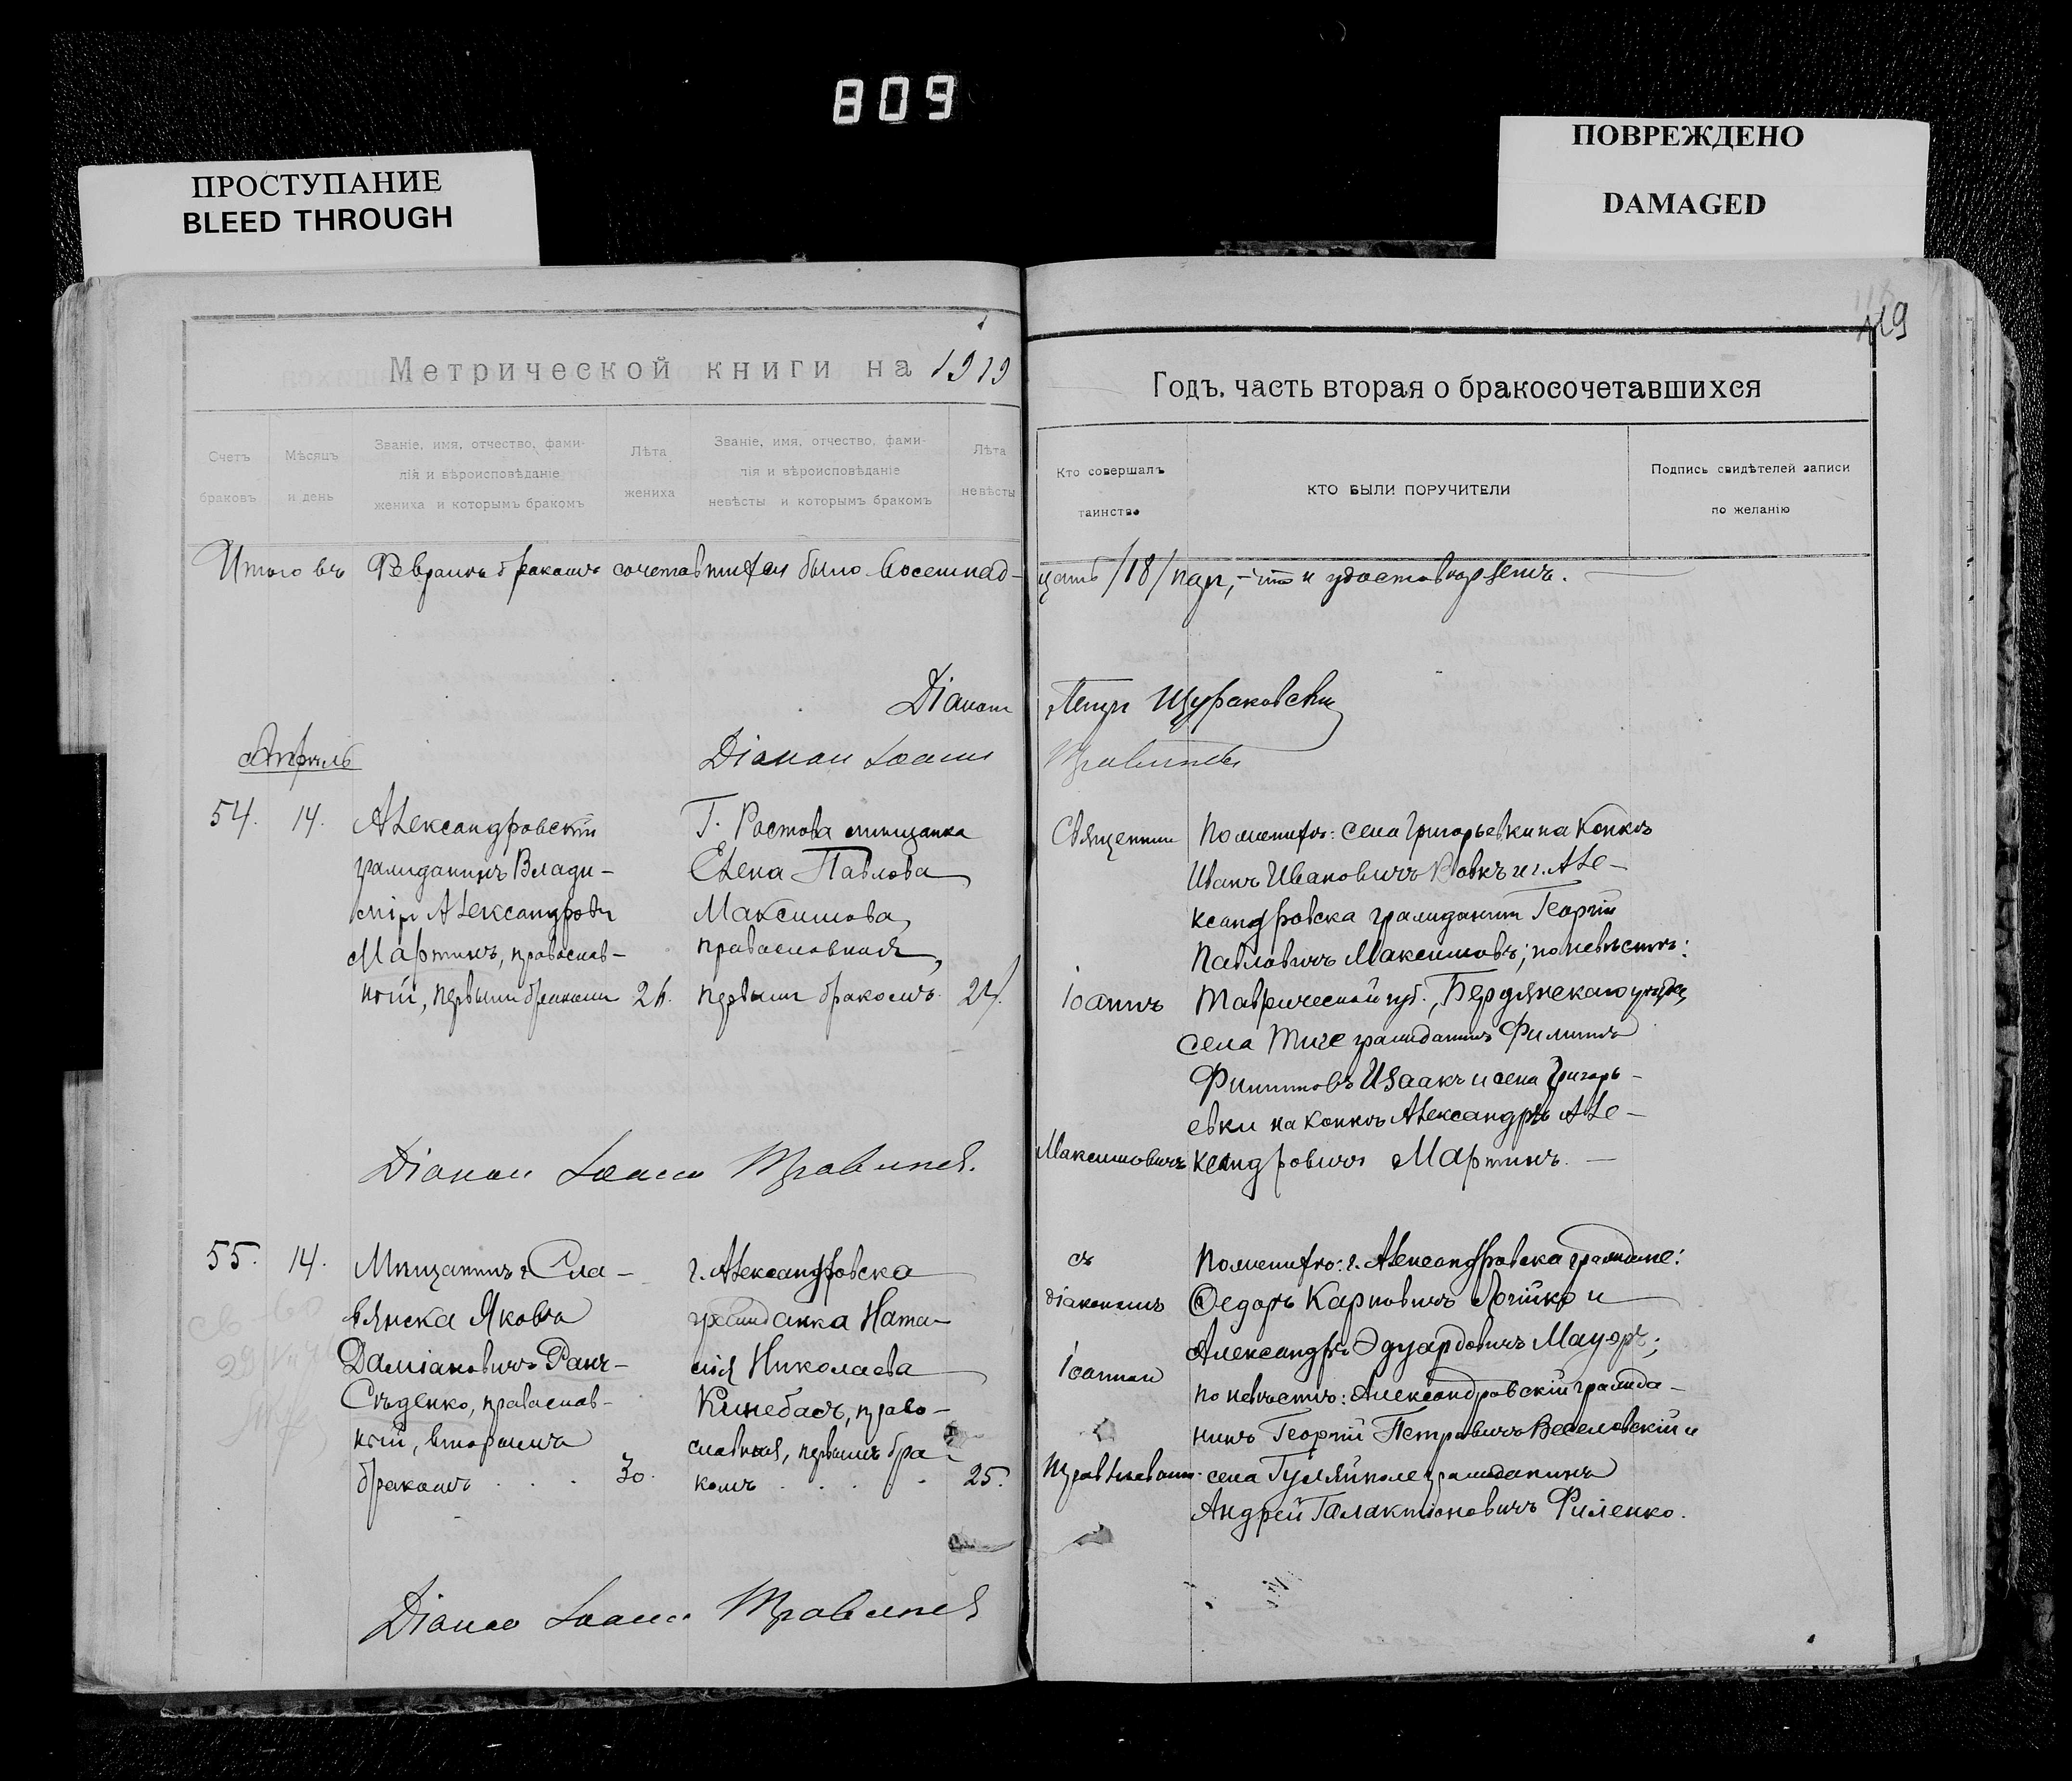 809
ПРОСТУПАНИЕ
BLEED THROUGH
ПОВРЕЖДЕНО
DAMAGED
119
Метрической книги на 1919
Годъ, часть вторая о бракосочетавшихся
Счетъ
браковъ
Мѣсяцъ
и день
Званіе, имя, отчество, фами-
лія и вѣроисповѣданіе
жениха и которымъ бракомъ
Лѣта
жениха
Званіе, имя, отчество, фами-
лія и вѣроисповѣданіе
невѣсты и которымъ бракомъ
Лѣта
невѣсты
Кто совершалъ
таинство
КТО БЫЛИ ПОРУЧИТЕЛИ
Подпись свидѣтелей записи
по желанію
Итого въ Февралѣ бракомъ сочетавшихся было восемнад-
цать /18/ пар, что и удостовѣряемъ.
Діакон Петръ Щураковскій
Діакон Іоаннъ
Апрѣль
54. 14.
Александровскій
гражданинъ Влади-
міръ Александровъ
Мартинъ, православ-
ный, первымъ бракомъ 26.
Г. Ростова мѣщанка
Елена Павлова
Максимова,
православная,
первымъ бракомъ 24.
Священник
Іоаннъ
Максимовичъ
По женихѣ: села Григорьевки на Конкѣ
Иванъ Ивановичъ Вовкъ и г. Але-
ксандровска гражданин Георгій
Павловичъ Максимовъ; по невѣстѣ:
Таврической губ., Бердянскаго уѣзда,
села гражданинъ Филиппъ
Филипповъ Изаакъ и села Григорь-
евки на Конкѣ Александръ Але-
ксандровичъ Мартинъ. —
Діакон Іоанн
55. 14.
Мѣщанинъ г. Сла-
вянска Яковъ
Даміановичъ Ранч-
Съденко, православ-
ный, вторымъ
бракомъ . . . 30.
г. Александровска
гражданка Ната-
лія Николаева
Кинебасъ, право-
славная, первымъ бра-
комъ . . . . 25.
съ
діакономъ
Іоанном
По женихѣ: г. Александровска граждане:
Ѳедоръ Карповичъ и
Александръ Эдуардовичъ Мауэръ;
по невѣстѣ: Александровскій гражда-
нинъ Георгій Петровичъ Веселовскій и
села Гуляйполе гражданинъ
Андрей Галактіоновичъ Филенко.
Діакон Іоанн